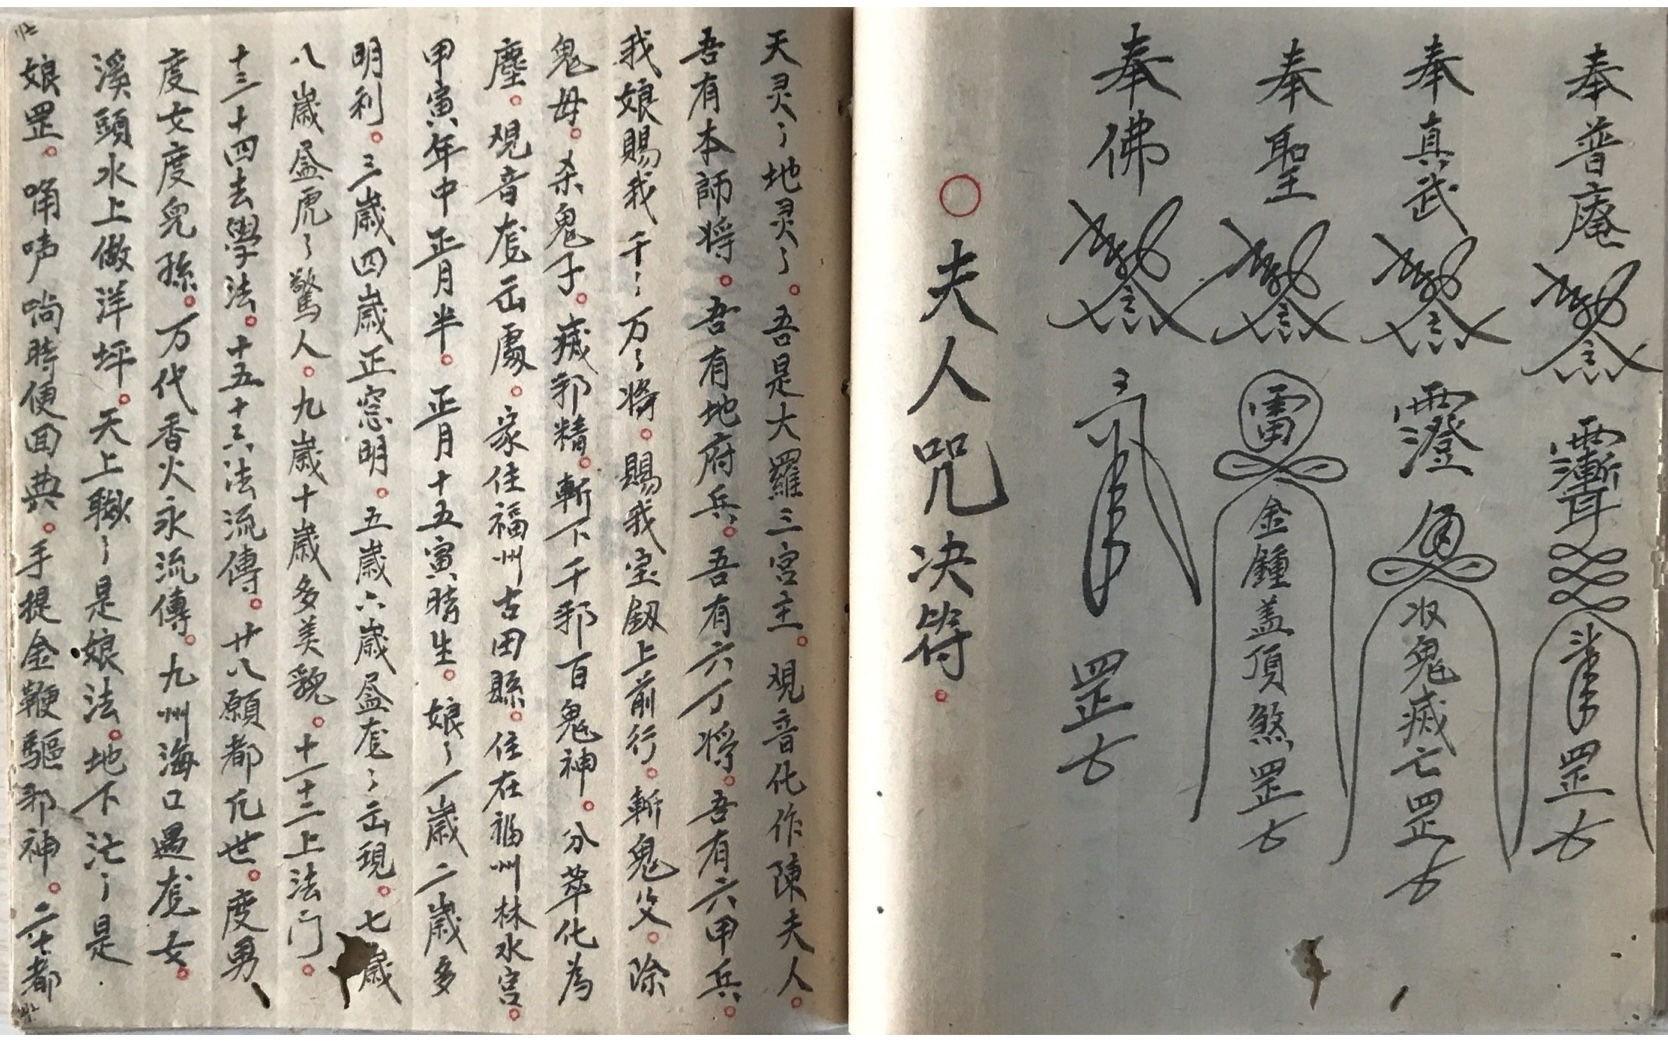 奉普庵 罡
奉真武 収鬼滅亡罡
奉聖 雷 金鍾蓋頂煞罡
奉佛 罡
○夫人咒决符。
天灵〻地灵〻。吾是大羅三宫主。观音化作陳夫人。
吾有本師将。吾有地府兵。吾有六丁将。吾有六甲兵。
我娘賜我千〻万〻将。賜我宝劔上前行。斬鬼父。除
鬼母。杀鬼子。滅邪精。斬下千邪百鬼神。分萃化為
塵。观音屘岀處。家住福州古田縣。住在福州林水宫。
甲寅年中正月半。正月十五寅時生。娘〻一歲二歲多
明利。三歲四歲正窓明。五歲六歲盈屘〻岀現。七歲
八歲盈虎〻驚人。九歲十歲多美貌。十一十二上法门。
十三十四去學法。十五十六法流傳。廿八願都凢世。度男
度女度兒孫。万代香火永流傳。九州海口遇屘女。
溪頭水上做洋坪。天上〻是娘法。地下茫〻是
娘罡。声時便回典。手提金鞭驅邪神。二七都